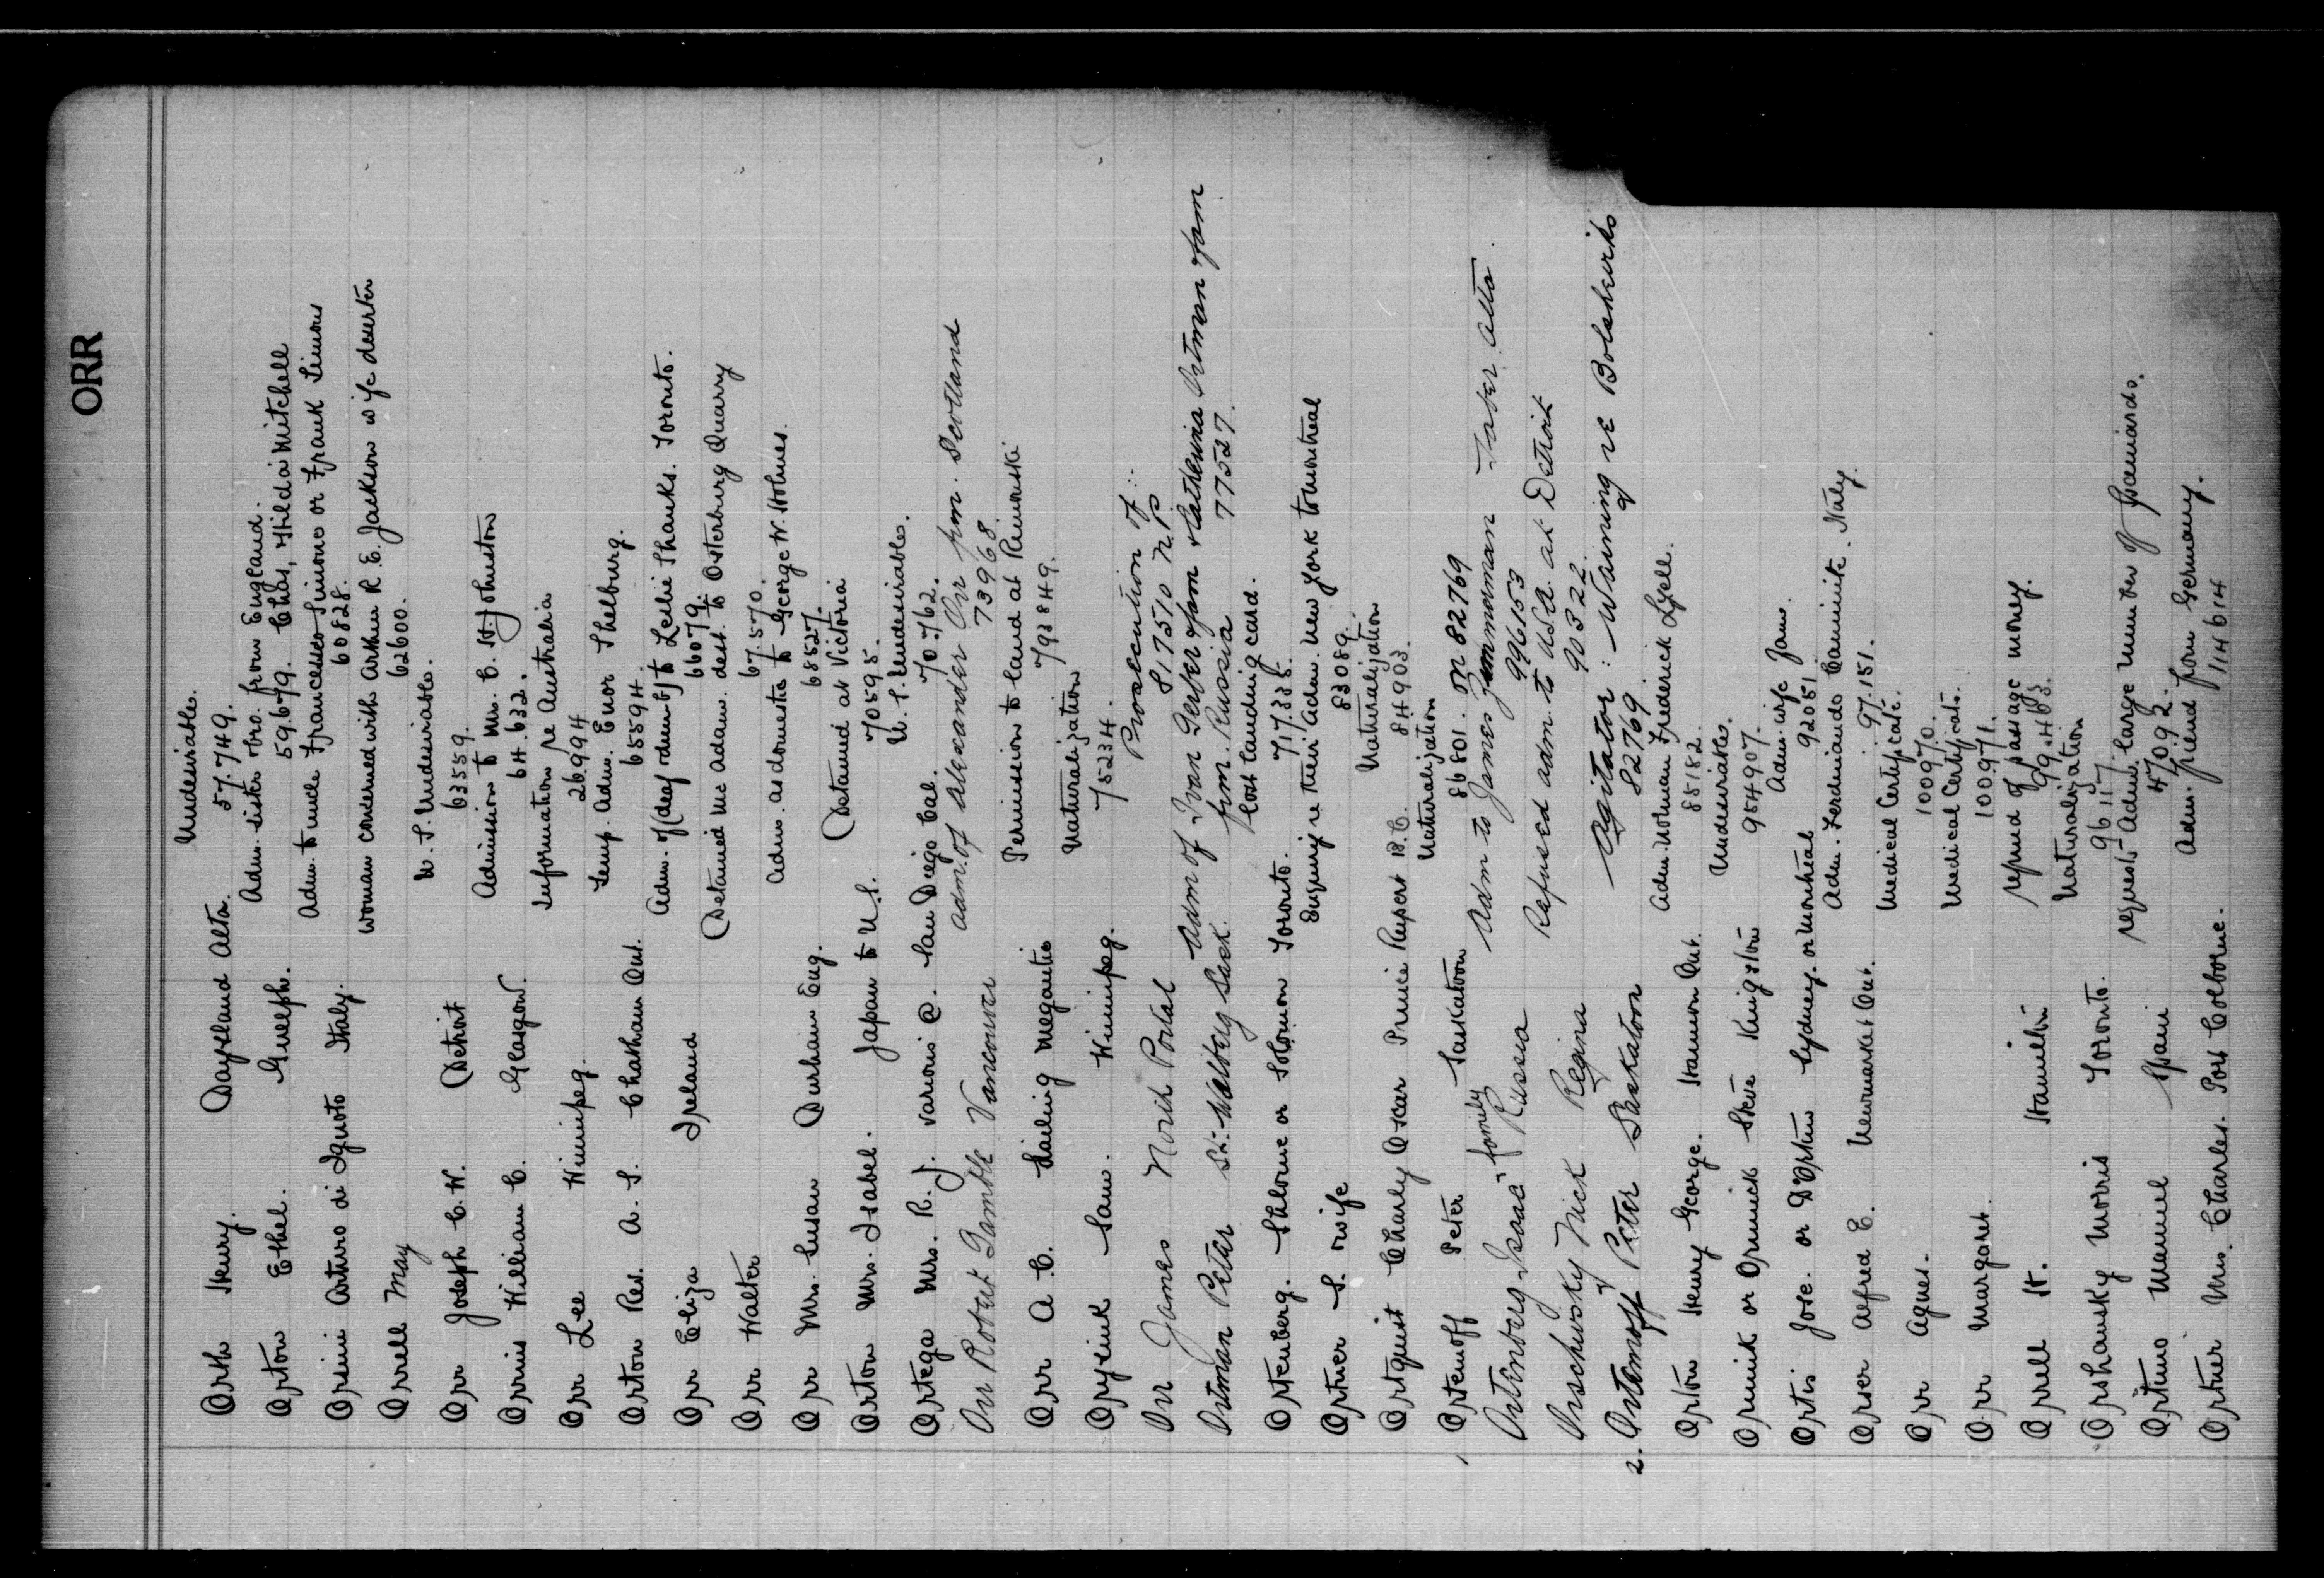 ORR
Orth Henry. Daysland Alta. Undesirables.
57.749.
Orton Ethel. Guelph. Adm. sister & bro. from England.
59.679. Chas, & Hilda Mitchell
Orsini Arturo di Iguoto Italy. Adm. to uncle Francesco Simone or Frank Simons
60828.
Orrell May Woman concerned with Arthur R. E. Jackson wife deserter
62600.
Orr Joseph C. W. Detroit U. S. Undesirable.
63559.
Orrins William C. Glasgow. Admission to Mrs. C. H. Johnston
64.632.
Orr Lee Winnipeg. Information re Australia
26.994
Orton Rev. A. S. Chatham Ont. Temp. Adm. Enor Shelburg.
65594.
Orr Eliza Ireland Adm. of (deaf & dumb) to Leslie Shanks. Toronto.
66079.
Orr Walter Detained McAdam. dest. to Osterburg Quarry
67.570.
Orr Mrs. Susan Durham Eng. Adm. as domestic to George W. Holmes.
68527.
Orton Mrs. Isabel. Japan to U.S. Detained at Victoria
70595.
Ortega Mrs. R. J. various @. San Diego Cal. U. S. Undesirables.
70762.
Orr Robert Gamble Vancouver Adm. of Alexander Orr frm. Scotland
73968
Orr A. C. Sailing Megantic Permission to land at Rimouski
793849.
Orysiuk Sam. Winnipeg. Naturalization
75234.
Orr James North Portal Prosecution of:
817510 N.P.
Ortman Peter St. Walburg Sask. Adm of Ivan Gerber & fam & Catherina Ortman & fam
frm. Russia 77527.
Ortenberg. Shlome or Solomon Toronto. Lost landing card.
717.335.
Ortner S. & wife Enquiry re their Adm. New York to Montreal
83089.
Ortquist Charly Oscar Prince Rupert B.C. Naturalization
84903.
1 Ortemoff Peter Saskatoon Naturalization
86801. OR 82769
Ortenburg Isaac & family Russia Adm to James Zimmerman Taber Alta.
996153
Orschursky Nick Regina Refused adm. to U.S.A. at Detroit
90322.
2. Ortemoff Peter Saskatoon Agitator: Warning of re Bolsheviks
82769
Orton Henry George. Hannon Ont. Adm. Norman Frederick Lyell.
85182.
Orminik or Orminick Steve Kingston Undesirables.
954907.
Ortis Jose. or D'Ortin Sydney. or Montreal Adm. wife & fam.
92051
Orser Alfred E. Newmarket Ont. Adm. Ferdinando Caminite. Italy.
97.151.
Orr Agnes. Medical Certificate.
100970.
Orr Margaret. Medical Certificate.
100.971.
Orrell H. Hamilton refund of passage money.
99.483.
Orshansky Morris Toronto. Naturalization
96117
Ortuno Manuel Spain request Adm. large number of Spaniards.
47092.
Ortner Mrs. Charles. Port Colborne. Adm. friend from Germany.
114614